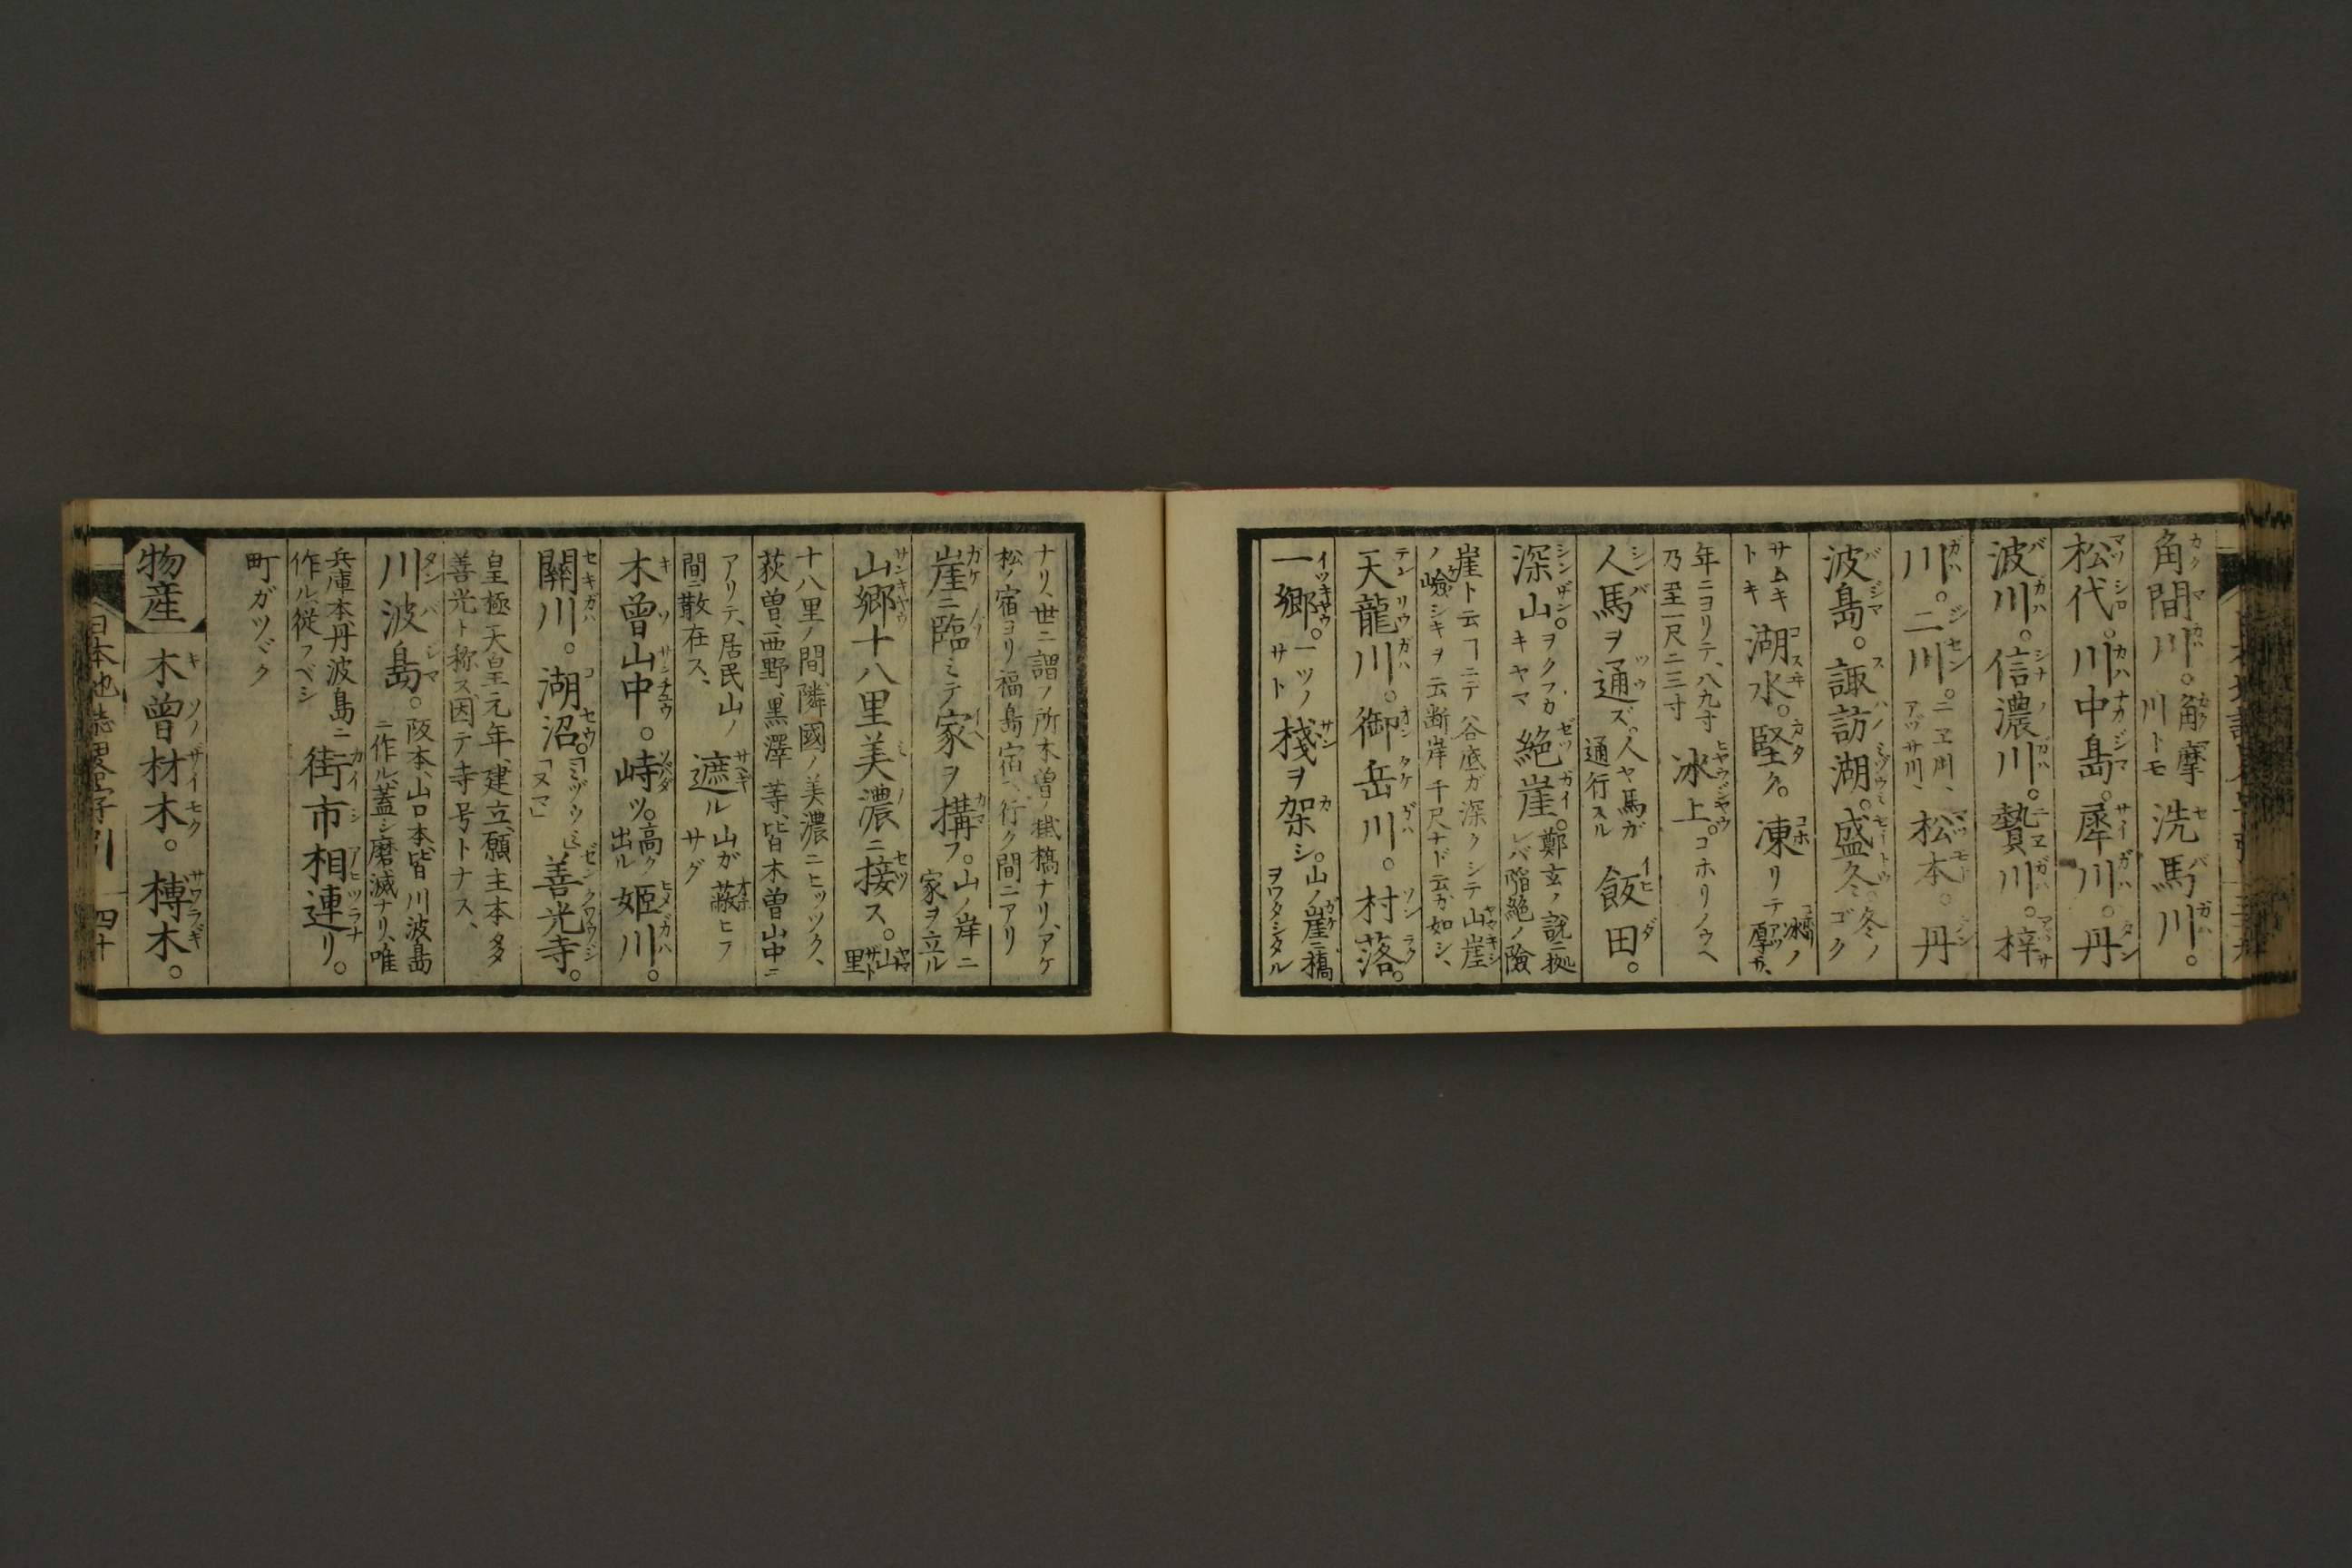 角間川。角摩川トモ 洗馬川。
松代。川中島。犀川。丹
波川。信濃川。贄川。梓
川。二川。ニエ川、アヅサ川、 松本。丹
波島。諏訪湖。盛冬。冬ノゴク
サムキトキ 湖水。堅ク。凍リテ 氷ノ厚サ、
年ニヨリテ、八九寸乃至一尺二三寸 氷上。コホリノウヘ
人馬ヲ通ズ。人ヤ馬ガ通行スル 飯田。
深山。ヲクフカキヤマ 絶崖。鄭玄ノ説ニ拠レバ陷絶ノ險
崖ト云ヿニテ谷底ガ深クシテ山崖ノ嶮シキヲ云断岸千尺ナド云ガ如シ、
天龍川。御岳川。村落。
一郷。一ツノサト 棧ヲ架シ。山ノ崖ニ橋ヲワタシタル
ナリ、世ニ謂ノ所木曽ノ棧橋ナリ、アケ松ノ宿ヨリ福島宿ヘ行ク間ニアリ
崖ニ臨ミテ家ヲ構フ。山ノ岸ニ家ヲ立ル
山郷十八里美濃ニ接ス。山里
十八里ノ間隣國ノ美濃ニヒッツク、荻曽、西野、黒澤等、皆木曽山中ニ
アリテ、居民山ノ間ニ散在ス、 遮ル 山ガ蔽ヒフサグ
木曾山中。峙ツ。高ク出ル 姫川。
關川。湖沼。「ミヅウミ」「ヌマ」 善光寺。
皇極天皇元年、建立、願主本多善光ト称ス、因テ寺号トナス、
川波島。阪本、山口本、皆川波島ニ作ル、蓋シ磨滅ナリ、唯
兵庫本、丹波島ニ作ル、從フベシ 街市相連リ。
町ガツヾク
物産 木曾材木。榑木。
日本地誌畧字引 四十